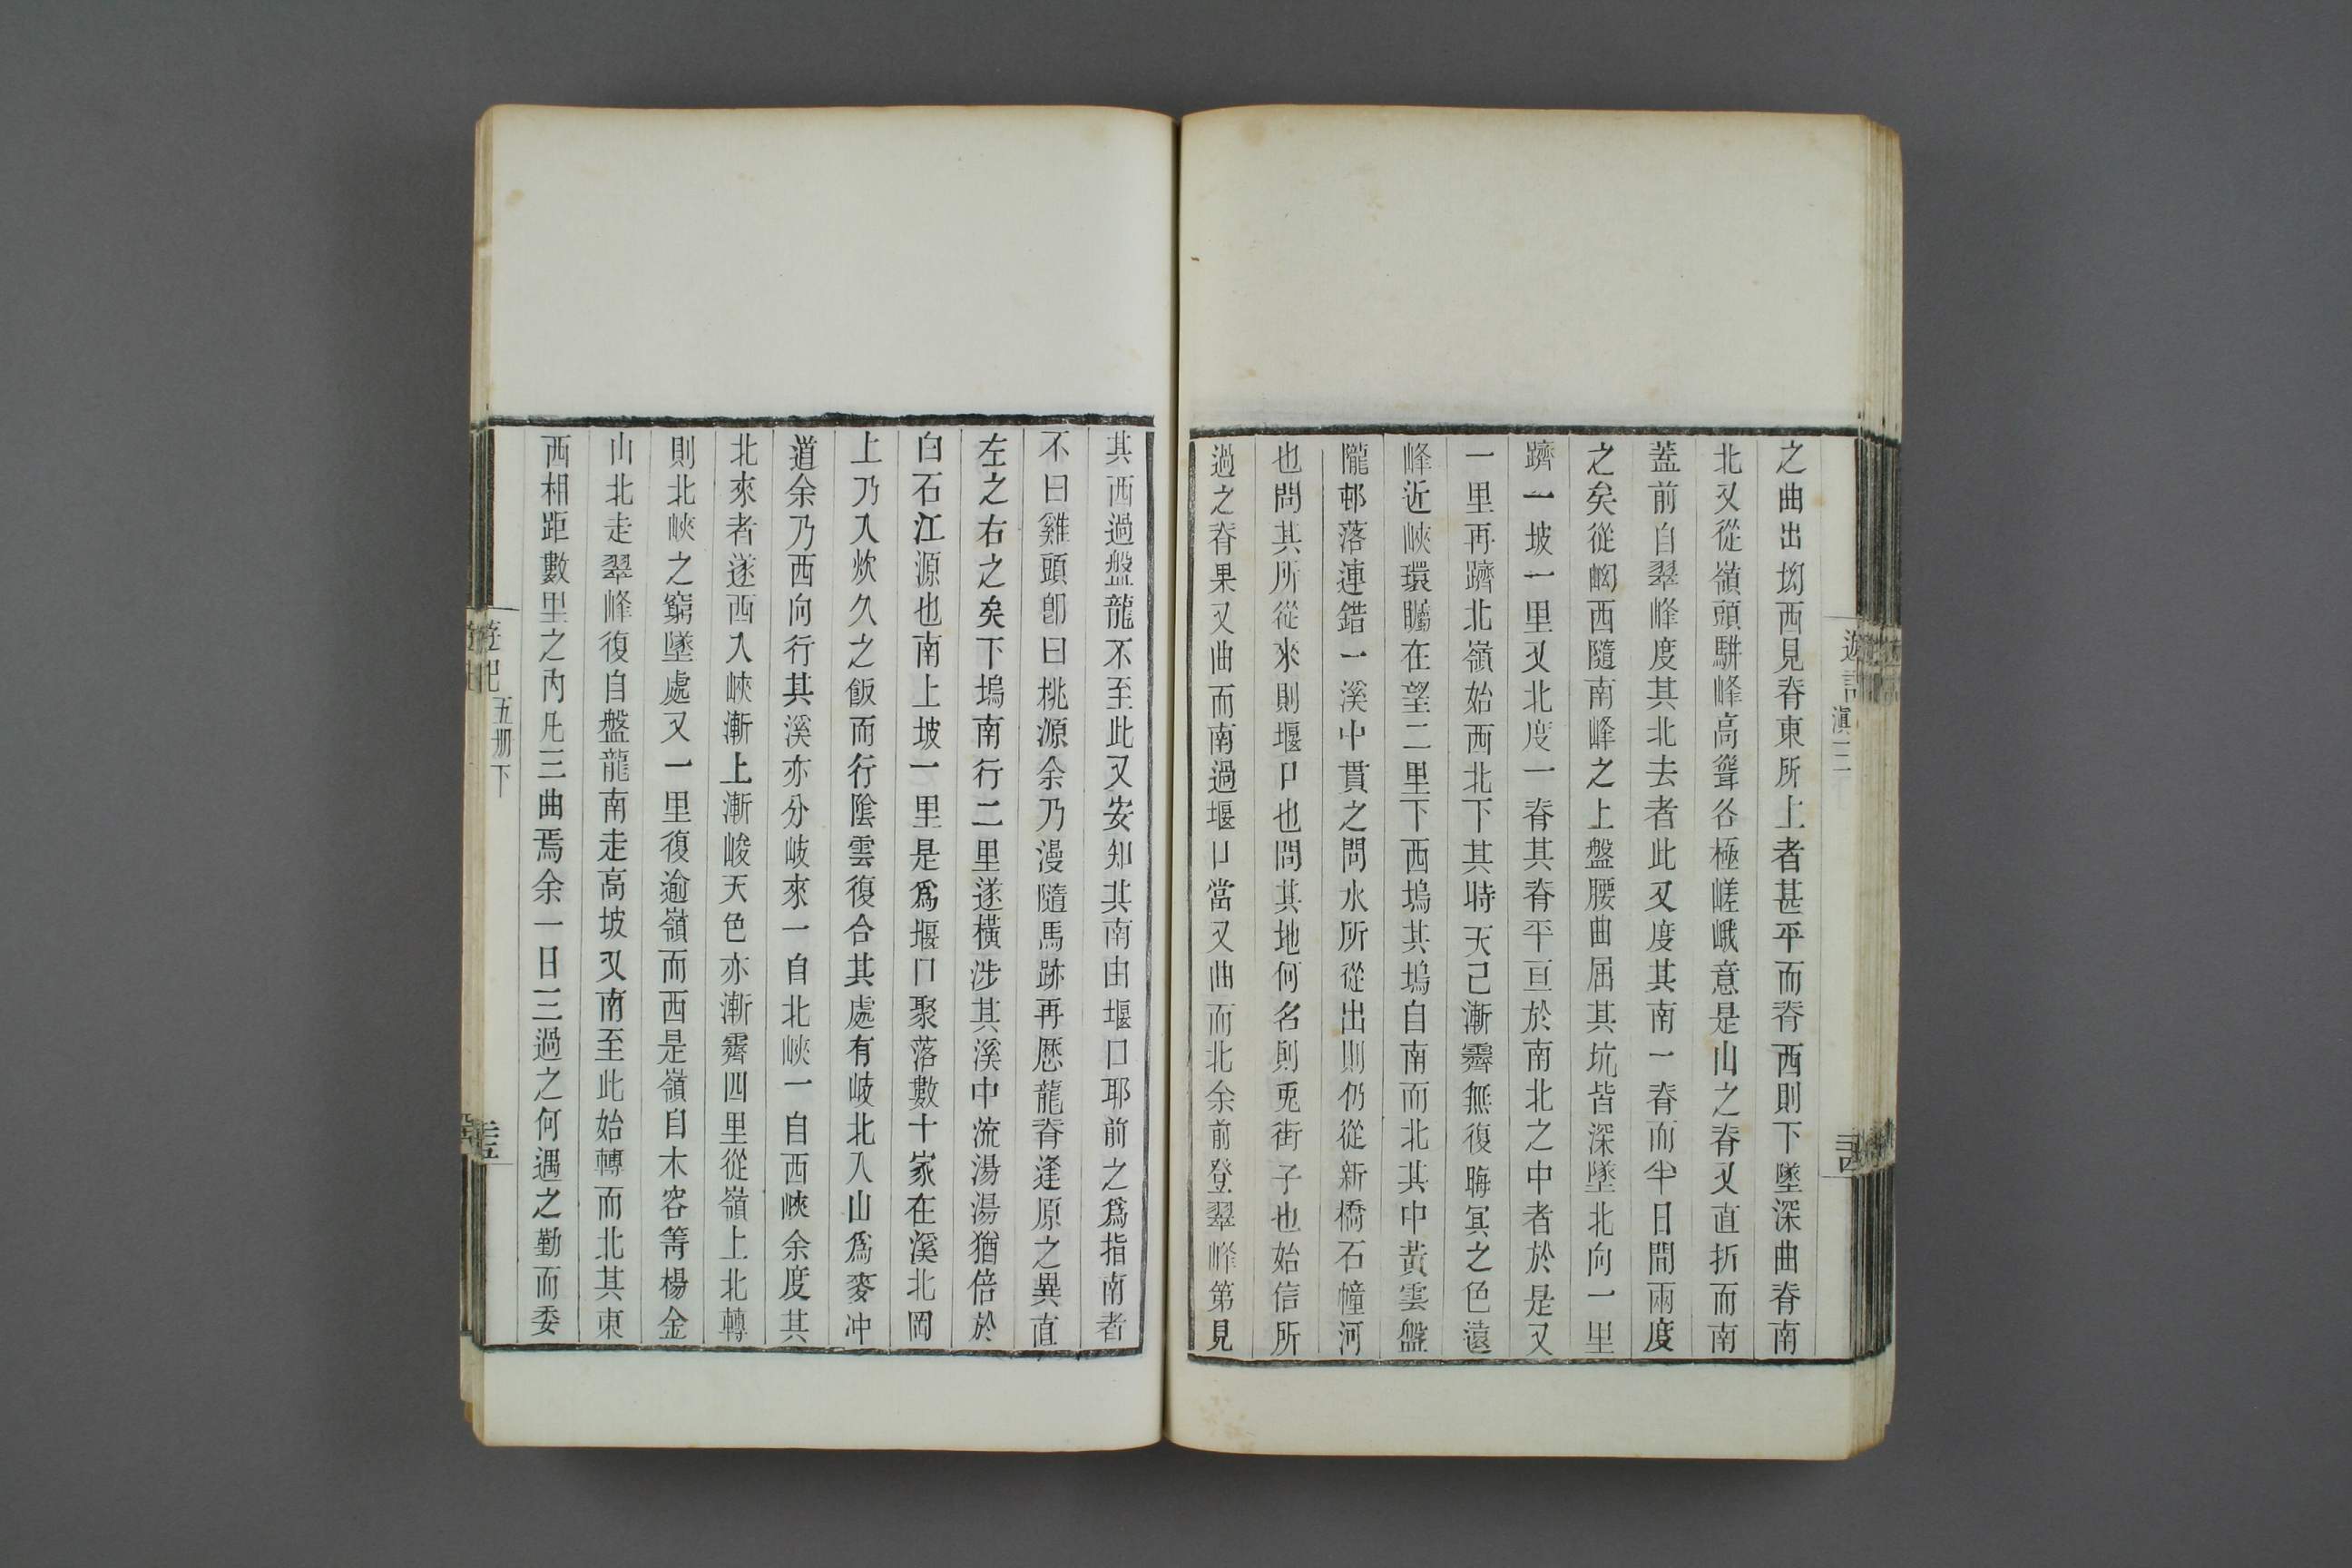 遊記 滇三
之曲出坳西見脊東所上者甚平而脊西則下墜深曲脊南
北又從嶺頭駢峰高聳各極嵯峨意是山之脊又直折而南
蓋前自翠峰度其北去者此又度其南一脊而半日間兩度
之矣從峽西隨南峰之上盤腰曲屈其坑皆深墜北向一里
躋一坡一里又北度一脊其脊平亘於南北之中者於是又
一里再躋北嶺始西北下其時天已漸霽無復晦冥之色遠
峰近峽環矚在望二里下西塢其塢自南而北其中黃雲盤
隴邨落連錯一溪中貫之問水所從出則仍從新橋石幢河
也問其所從來則堰口也問其地何名則兎街子也始信所
過之脊果又曲而南過堰口當又曲而北余前登翠峰第見
其西過盤龍不至此又安知其南由堰口耶前之爲指南者
不曰雞頭卽曰桃源余乃漫隨馬跡再歷龍脊逢原之異直
左之右之矣下塢南行二里遂橫涉其溪中流湯湯猶倍於
白石江源也南上坡一里是爲堰口聚落數十家在溪北岡
上乃入炊久之飯而行陰雲復合其處有岐北入山爲麥冲
道余乃西向行其溪亦分岐來一自北峽一自西峽余度其
北來者遂西入峽漸上漸峻天色亦漸霽四里從嶺上北轉
則北峽之窮墜處又一里復逾嶺而西是嶺自木容箐楊金
山北走翠峰復自盤龍南走高坡又南至此始轉而北其東
西相距數里之內凡三曲焉余一日三過之何遇之勤而委
五册下